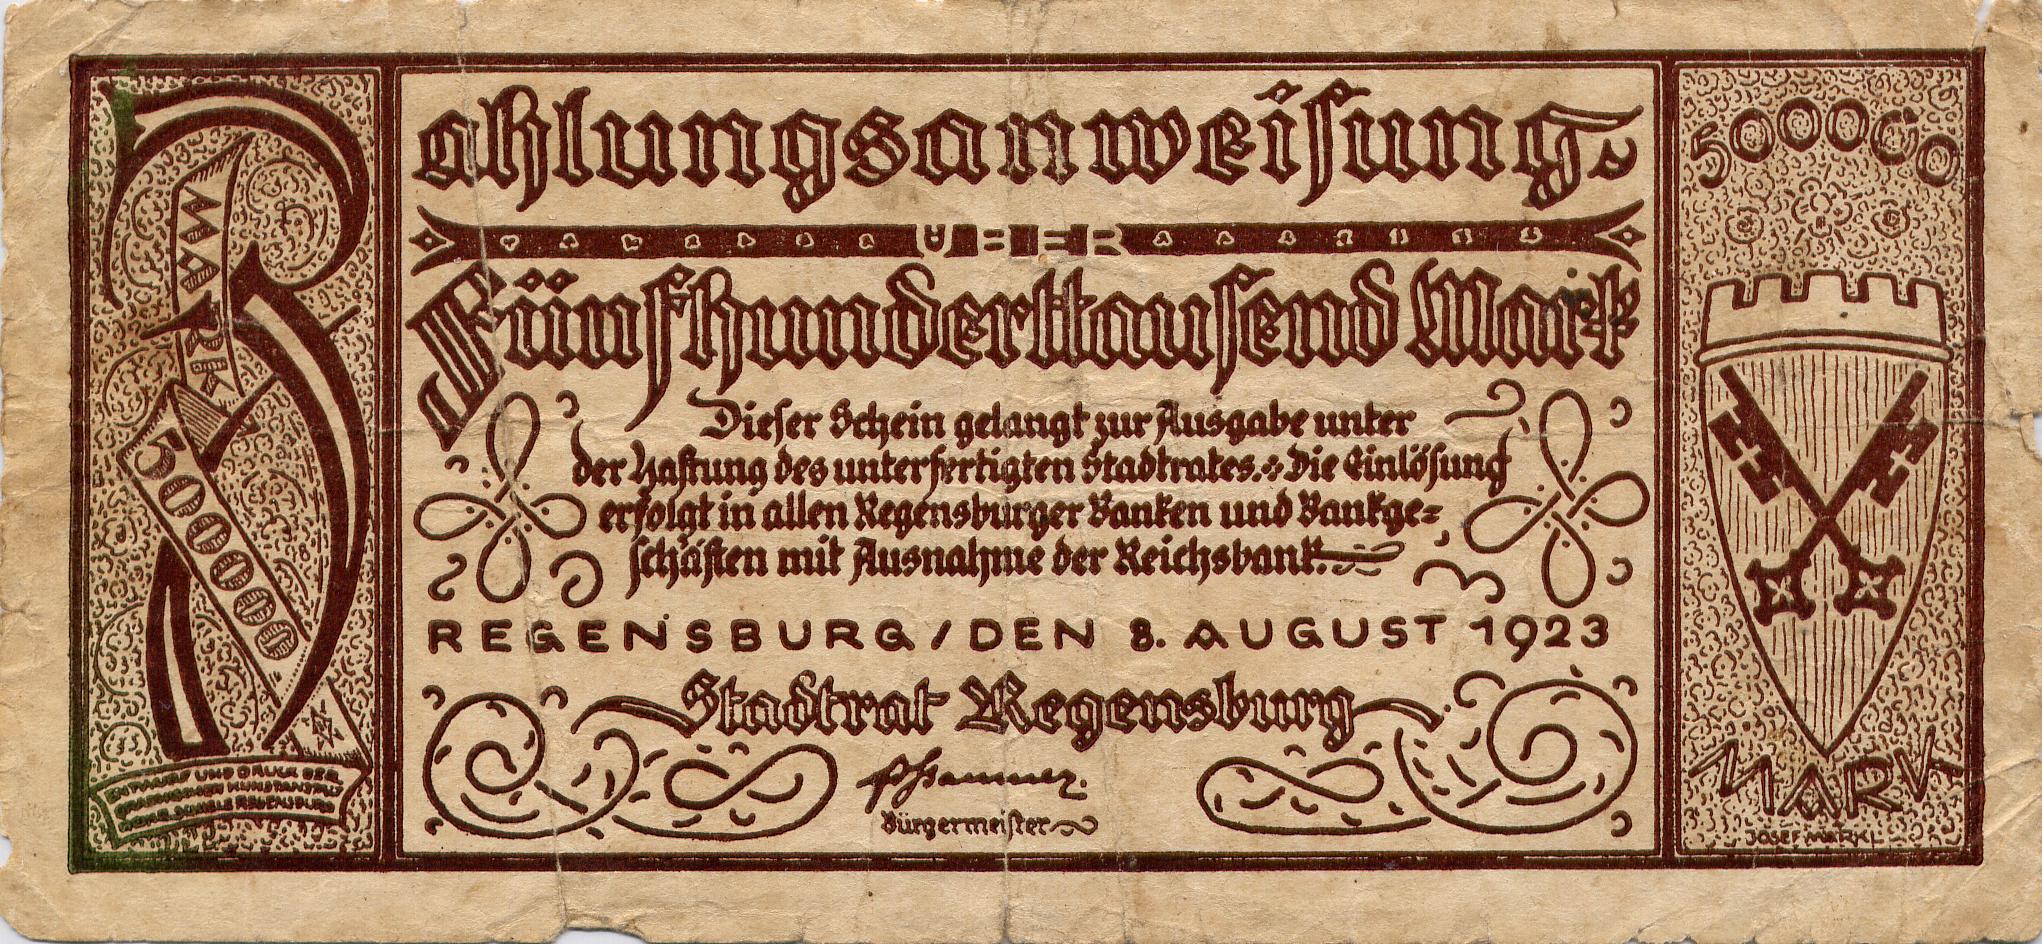 Zahlungsanweisung
ÜBER
Fünfhunderttausend Mark
Dieser Schein gelangt zur Ausgabe unter
der Haftung des unterfertigten Stadtrates. Die Einlösung
erfolgt in allen Regensburger Banken und Bankge=
schäften mit Ausnahme der Reichsbank.
REGENSBURG / DEN 8. AUGUST 1923
Stadtrat Regensburg
Bürgermeister
MARK
500000
ENTWURF UND DRUCK DER
GRAPHISCHEN KUNSTANSTALT
SCHIELE REGENSBURG
500000
MARK
JOSEF MARKL